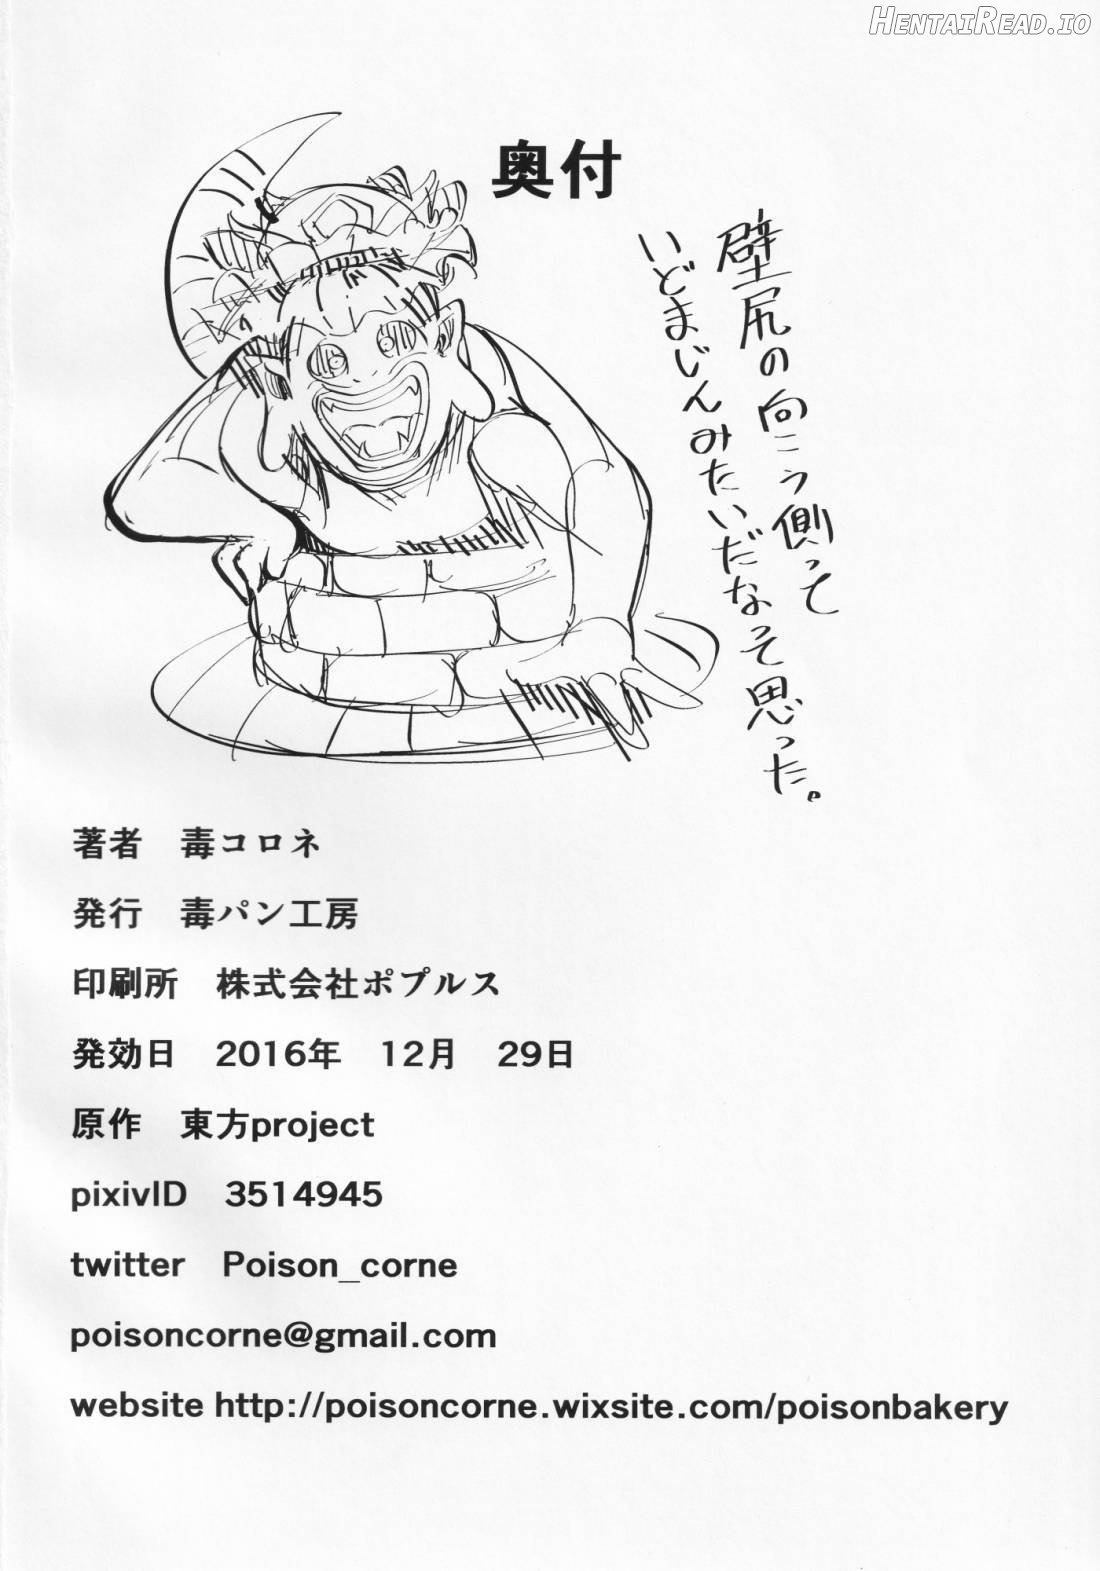 HentaiRead.io
奥付
壁尻の向こう側って
いどまじんみたいだなそ思った。
著者　毒コロネ
発行　毒パン工房
印刷所　株式会社ポプルス
発効日　2016年　12月　29日
原作　東方project
pixivID　3514945
twitter　Poison_corne
poisoncorne@gmail.com
website http://poisoncorne.wixsite.com/poisonbakery